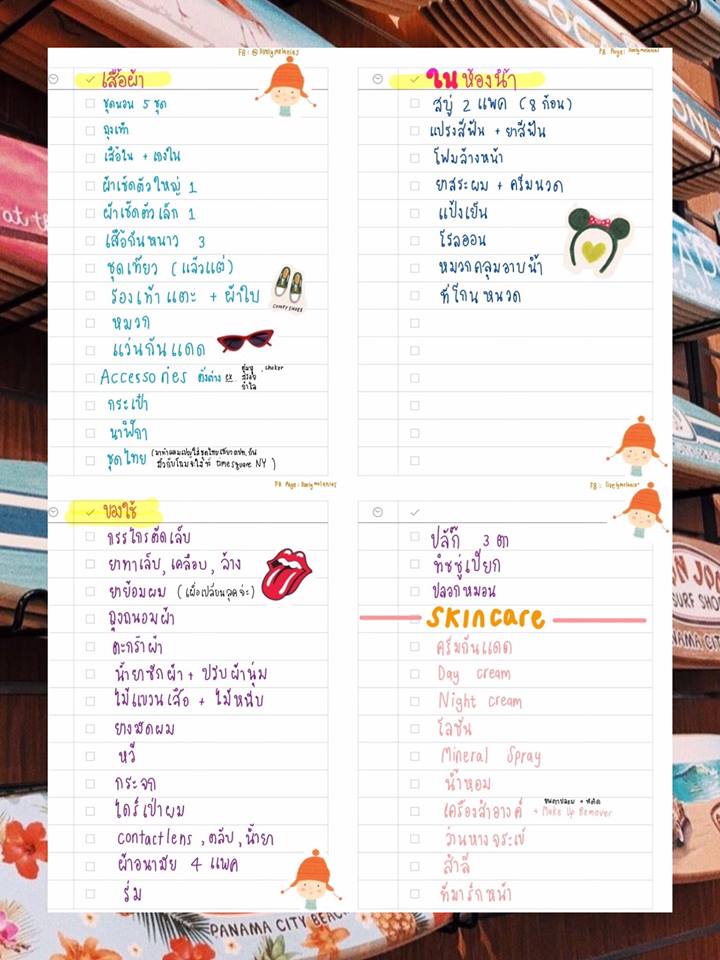 FB : @lovelymelanies
เสื้อผ้า
ชุดนอน 5 ชุด
ถุงเท้า
เสื้อใน + กางเกงใน
ผ้าเช็ดตัวใหญ่ 1
ผ้าเช็ดตัวเล็ก 1
เสื้อกันหนาว 3
ชุดเที่ยว (แล้วแต่)
รองเท้าแตะ + ผ้าใบ
COMFY SHOES
หมวก
แว่นกันแดด
Accessories ต่างๆ ex. ตุ้มหู, choker
สร้อย
กำไล
กระเป๋า
นาฬิกา
ชุดไทย
time square NY )
FB Page : lovelymelanies
ในห้องน้ำ
สบู่ 2 แพค (8 ก้อน)
แปรงสีฟัน + ยาสีฟัน
โฟมล้างหน้า
ยาสระผม + ครีมนวด
แป้งเย็น
โรลออน
หมวกคลุมอาบน้ำ
ที่โกนหนวด
FB Page : lovelymelanies
ของใช้
กรรไกรตัดเล็บ
ยาทาเล็บ, เคลือบ, ล้าง
ยาย้อมผม (เผื่อเปลี่ยนลุคจ้ะ)
ถุงถนอมผ้า
ตะกร้าผ้า
น้ำยาซักผ้า + ปรับผ้านุ่ม
ไม้แขวนเสื้อ + ไม้หนีบ
ยางมัดผม
หวี
กระจก
ไดร์เป่าผม
contactlens , ตลับ, น้ำยา
ผ้าอนามัย 4 แพค
ร่ม
FB : lovelymelanies
ปลั๊ก 3 ตา
ทิชชู่เปียก
ปลอกหมอน
skincare
ครีมกันแดด
Day cream
Night cream
โลชั่น
Mineral Spray
น้ำหอม
เครื่องสำอางค์ + Make Up Remover
ว่านหางจระเข้
สำลี
ที่มาร์กหน้า
PANAMA CITY BEACH
SURF SHOP
PANAMA CITY